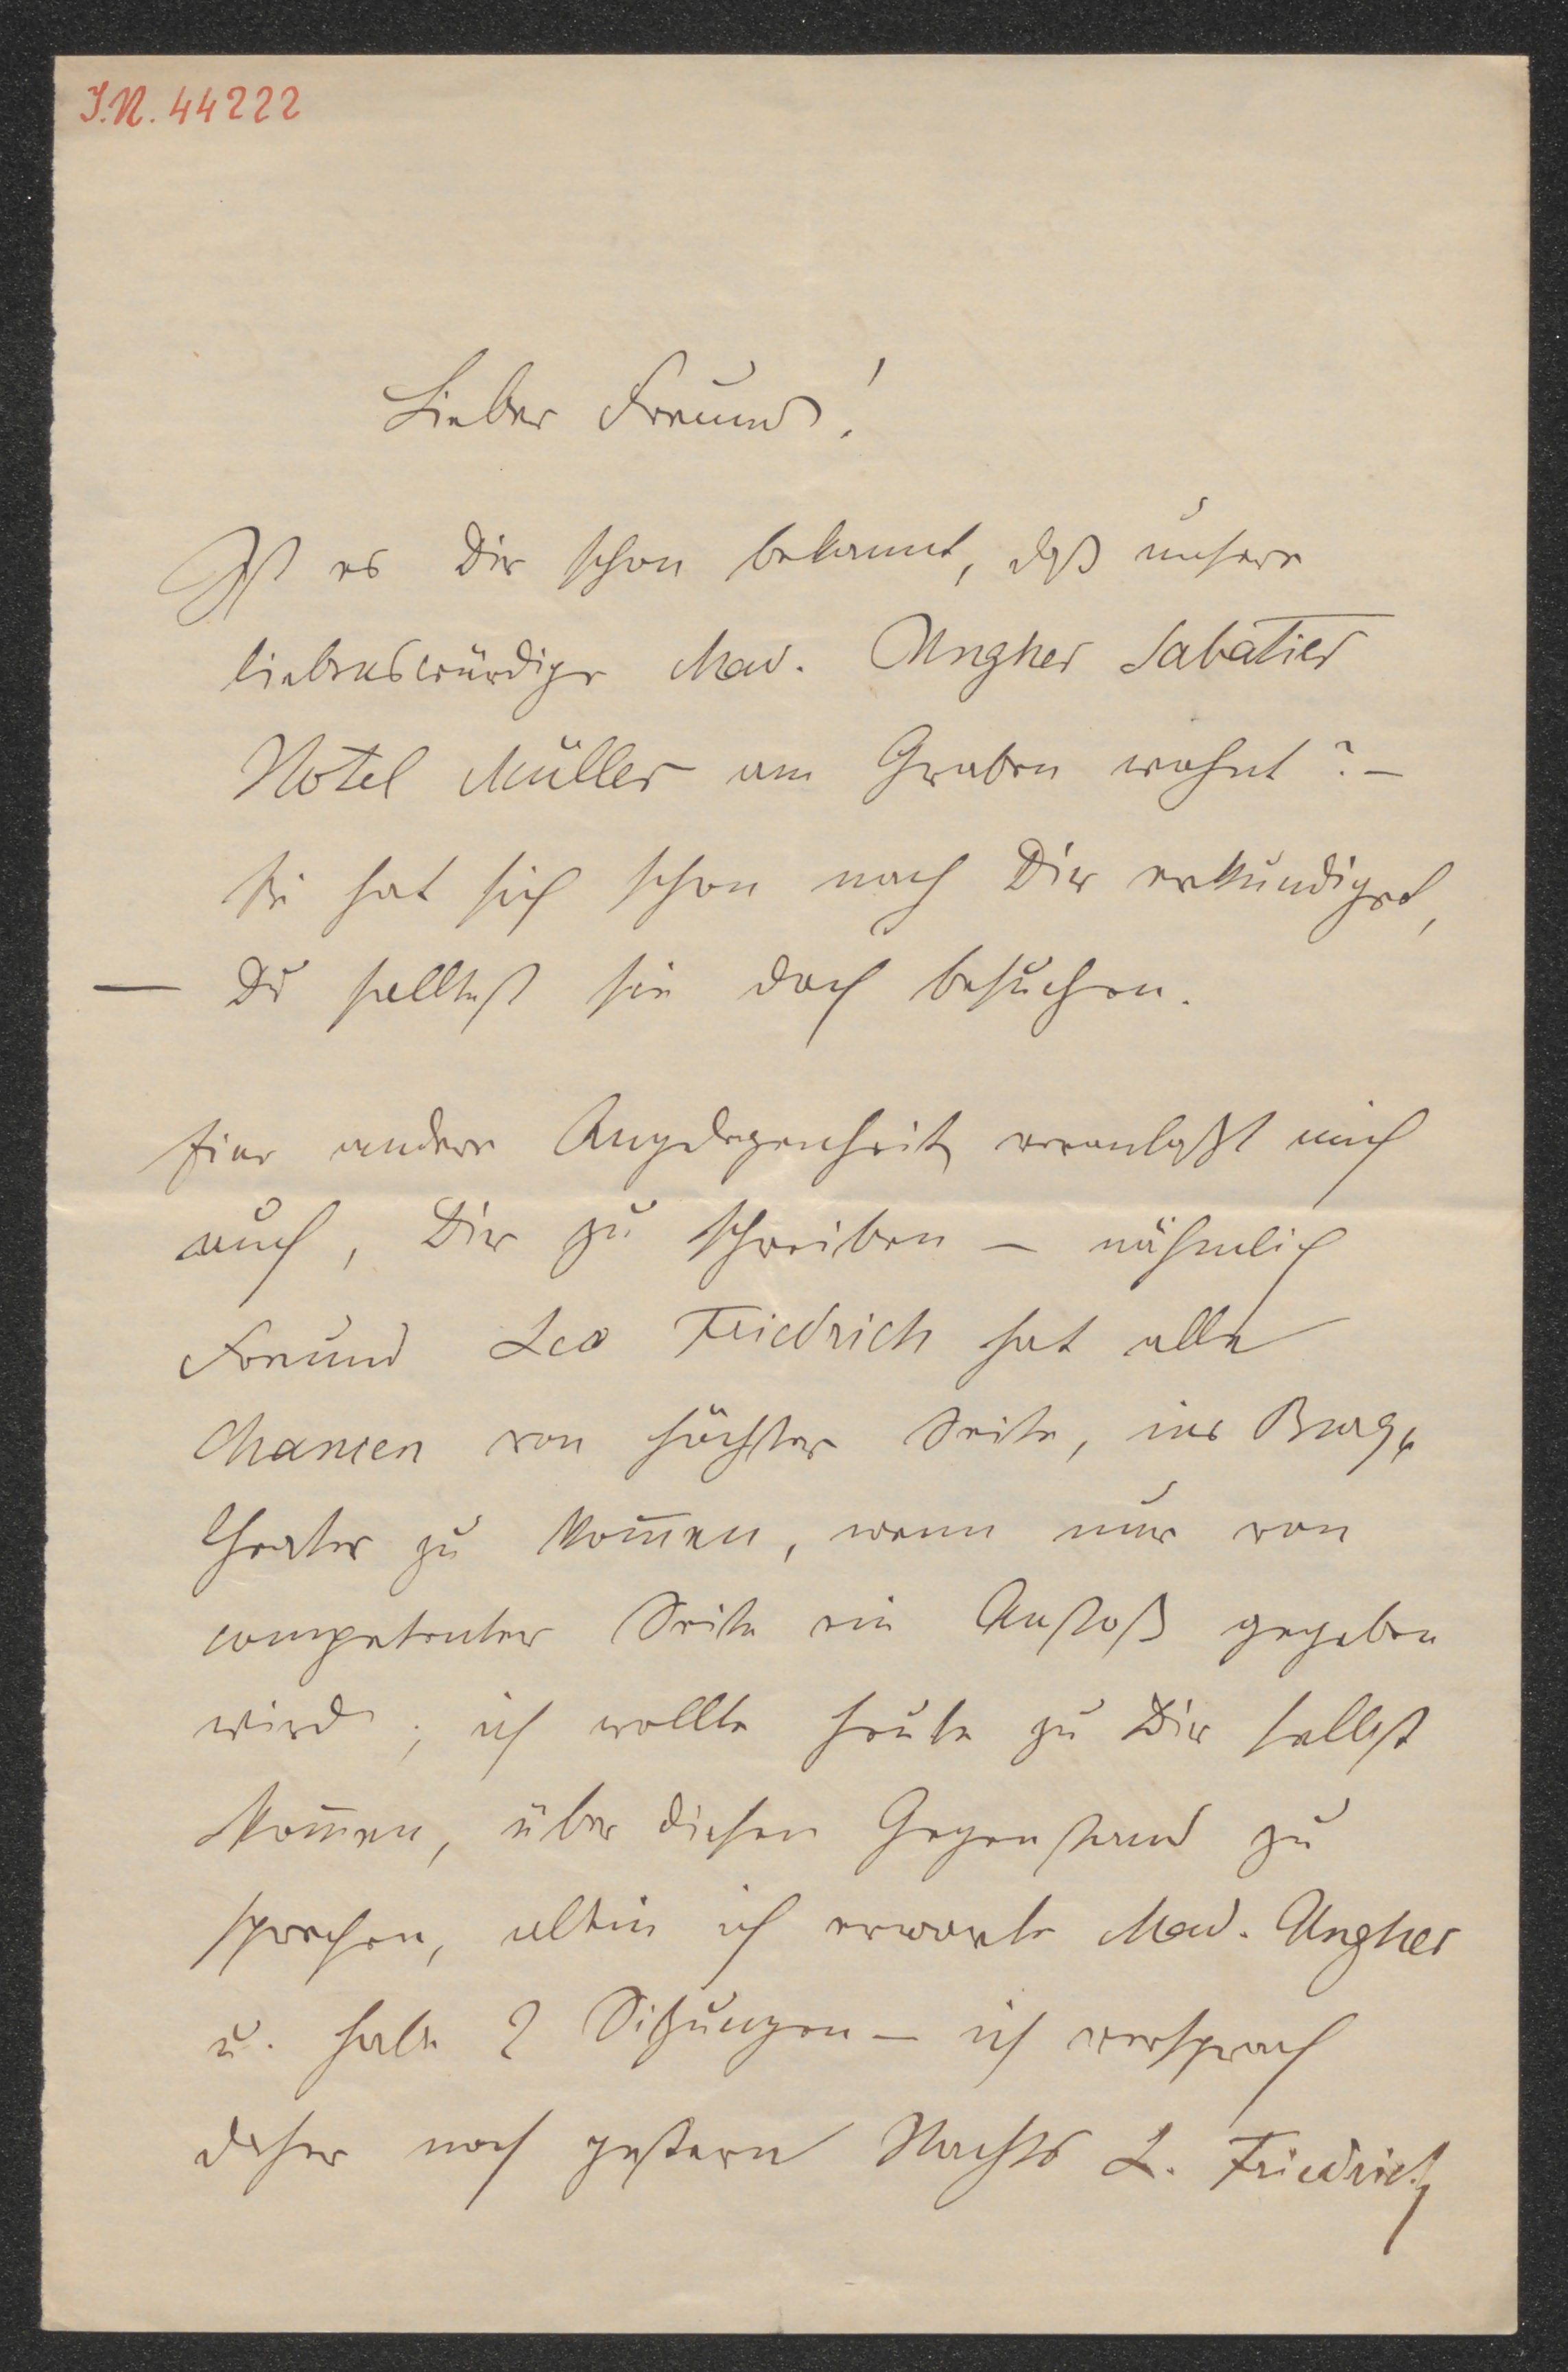 I.N. 44222
Lieber Freund!
Ist es Dir schon bekannt, daß unsere
liebenswürdige Mad. Ungher Sabatier
Hotel Müller am Graben wohnt? —
Sie hat sich schon nach Dir erkundiget,
— Du solltest sie doch besuchen.
Eine andere Angelegenheit veranlaßt mich
auch, Dir zu schreiben — nähmlich
Freund Leo Friedrich hat alle
Chancen von höchster Seite, ins Burg-
theater zu kom̅en, wenn nur von
competenter Seite ein Anstoß gegeben
wird; ich wollte heute zu Dir selbst
kom̅en, über diesen Gegenstand zu
sprechen, allein ich erwarte Mad. Ungher
u. habe 2 Sitzungen — ich versprach
daher noch gestern Nachts L. Friedrich